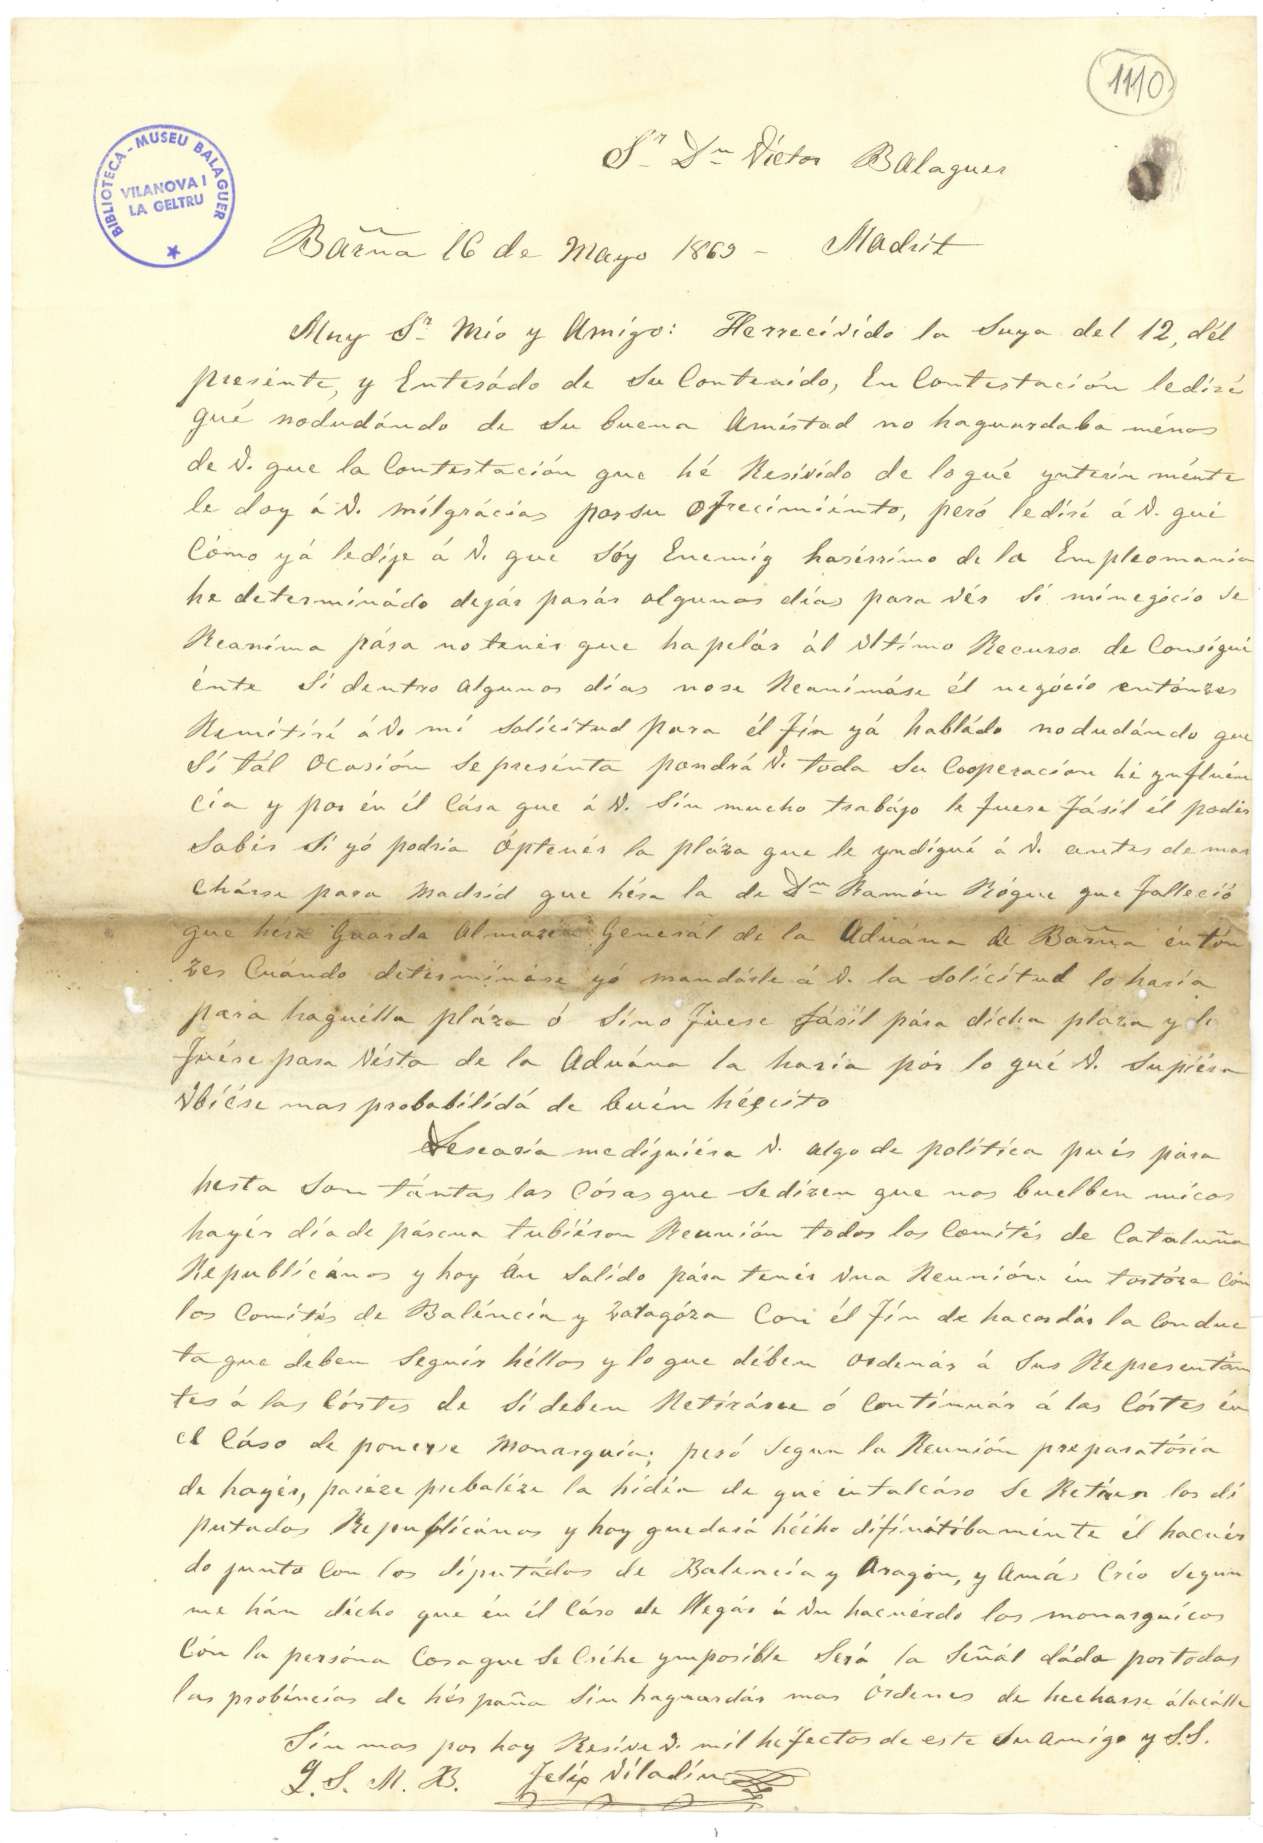 1110
BIBLIOTECA - MUSEU BALAGUER
VILANOVA I
LA GELTRU
Sr Dn Víctor BAlaguer
Barña 16 de Mayo 1869 - Madrit
Muy Sr Mío y Amígo: Herrecívído la Suya del 12, dél
presénte, y Enterádo de Su Conteaído, En Contestación lediré
qué nodudándo de Su buena Amístad no haguardaba ménos
de V. que la Contestación que hé Resivído de lo qué ynterinménte
le doy á V. mílgrácias por su ofrecimiénto, peró lediré á V. qué
Cómo yá ledije á V. que Sóy Enemíg haséríssimo de la Empleomanía
he determínádo dejár parár algunos días para vér Sí mínegócio Se
Reaníma pára no tenér que hapelár ál Vltímo Recurso de Consígui
énte Sí dentro algunos días nose Reanímáse él negócio entónzes
Remítíré á V. mí Solícítud para él fín yá habládo nodudándo que
Sí tál Ocasión Se presénta pondrá V. toda Su Cooperacion hé ynfluén
cía y por én él Cása que á V. Sín mucho trabájo le fuere fásíl él podér
Sabér Sí yó podría óptenér la pláza que le yndíqué á V. antes de mar
chárse para Madríd que héra la de Dn Ramón Róque que fallecíó
que héra Guarda Almazén Generál de la Aduána de Barña éntón
zes Cuándo determináse yó mandárle á V. la Solícítud lo haría
para haquélla pláza ó Síno fuese fásíl pára dícha plaza y le
fuése para Vísta de la Aduána la haría pór lo qué V. Supiéra
Vbiése mas probabílídá de buén hécsito
Desearía medíjuiéra V. algo de polítíca pués pára
hesta Son tántas las Cósas que Sedízen que nos buelben mícos
hayér día de páscua tubiéron Reunión todos los Comités de Cataluña
Republícános y hoy án Salído pára tenér Vna Reunión én tortóza Con
los Comítés de Baléncía y Zaragóza Con él fín de hacordár la Conduc
ta que deben Seguír héllos y lo que dében Ordenár á Sus Representán
tes á las Córtes de Sí deben Retírárse ó Contínuár á las Córtes én
el Cáso de ponerse Monarquía; peró Segun la Reunión preparatória
de hayér, paréze prebaléze la hídéa de qué én talcáso Se Retíren los dí
putados Republícános y hoy quedará hécho difínítíbaménte él hacuér
do junto Con los díputádos de Balencía y Aragón, y Amás Créo Segun
me hán dícho que én él Cáso de llegár á Vn hacuérdo los monarquícos
Cón la persóna Cosa que Se Créhe ymposíble Será la Señál dáda por todas
las probíncías de héspaña Sín haguardár mas Ordenes de hecharse álacálle
Sín mas por hoy Resíve V. míl héfectos de este Su Amígo y S.S.
Q. S. M. B. Felíp Víladín